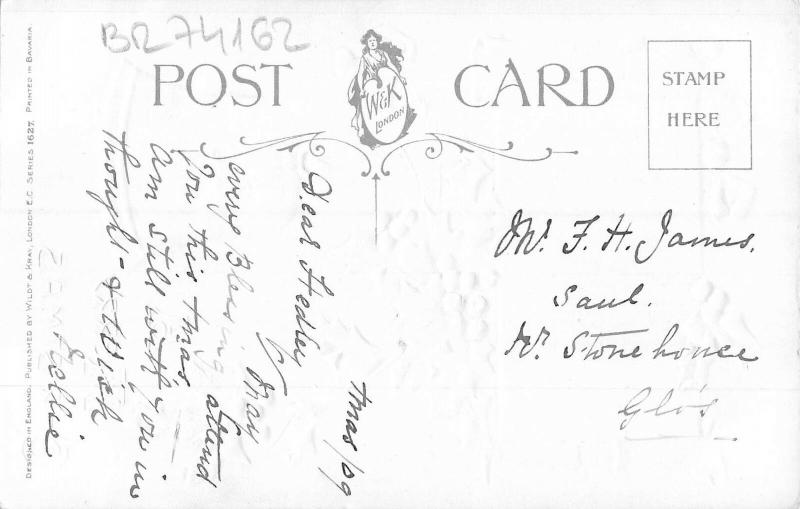 BR74162
POST CARD
W&K
LONDON
STAMP
HERE
DESIGNED IN ENGLAND. PUBLISHED BY WILDT & KRAY, LONDON E.C. SERIES 1627. PRINTED IN BAVARIA.
Xmas/09
Dear Hedley
May
every Blessing attend
you this Xmas
am still with you in
thought & Wish
Nellie
Mr. F. H. James.
Saul.
Nr. Stonehouse
Glos